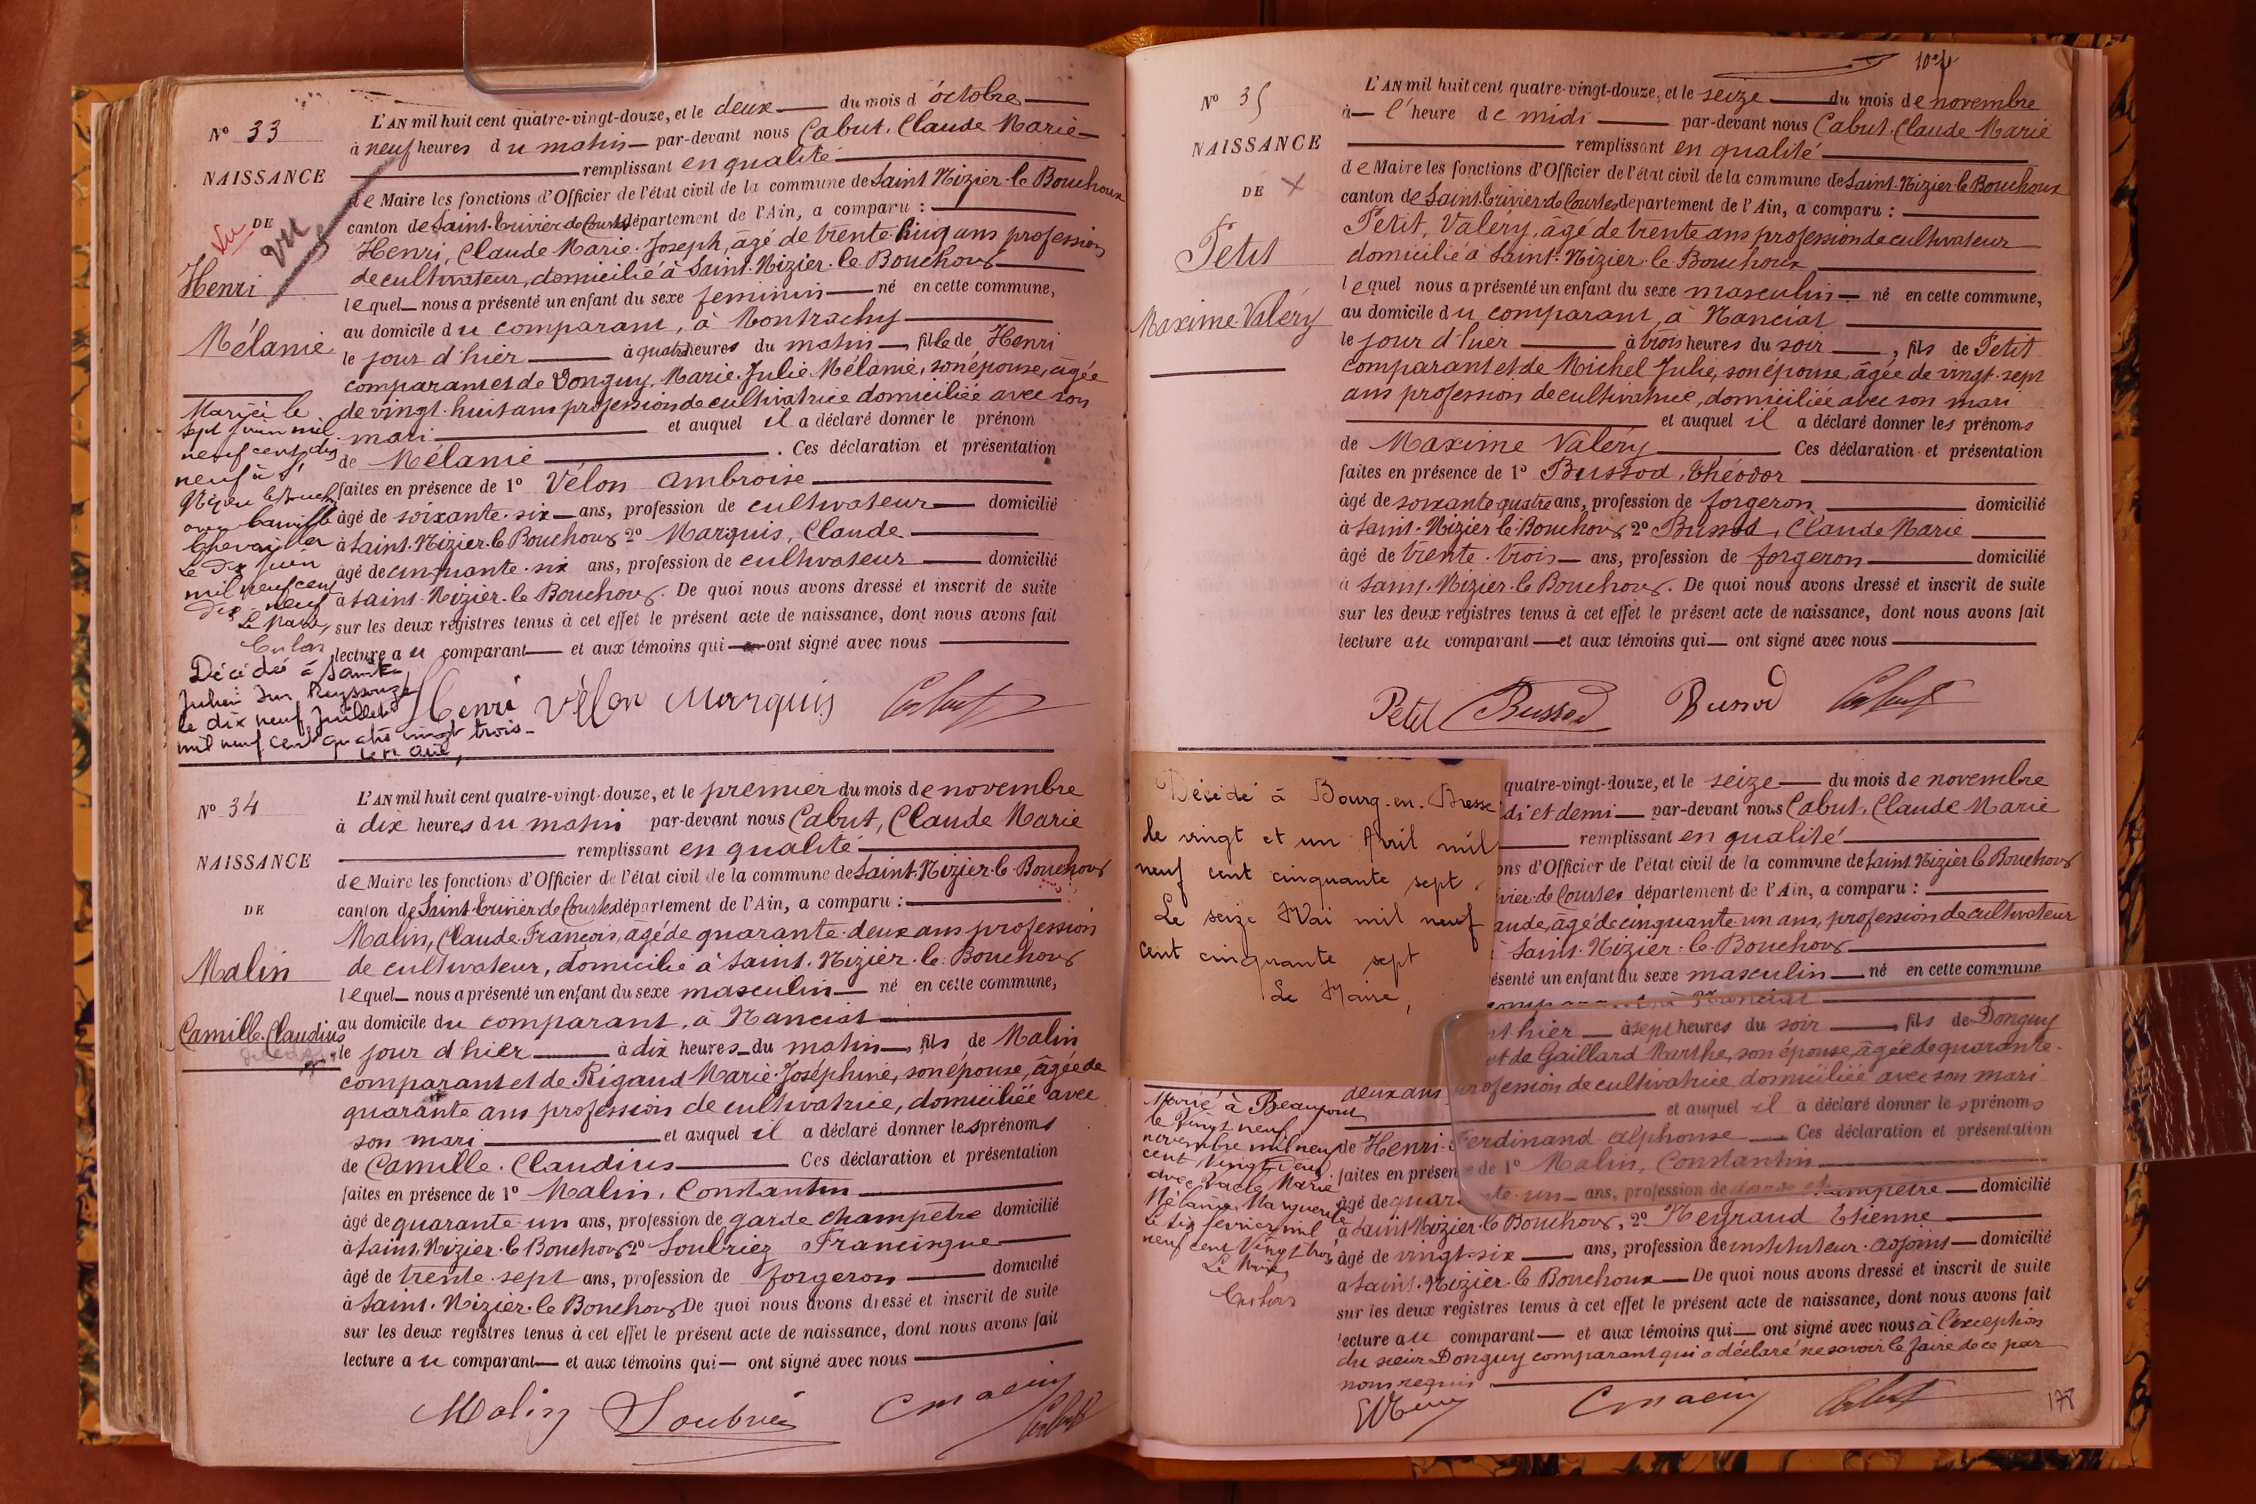 N° 33
NAISSANCE
DE
Vu
vu
Henri
Mélanie
L'AN mil huit cent quatre-vingt-douze, et le deux du mois d'octobre
à neuf heures du matin par-devant nous Cabut, Claude Marie
remplissant en qualité
de Maire les fonctions d'Officier de l'état civil de la commune de Saint Nizier-le Bouchoux
canton de Saint-Trivier de Courtes département de l'Ain, a comparu :
Henri, Claude Marie-Joseph, âgé de trente-cinq ans profession
de cultivateur, domicilié à Saint-Nizier-le Bouchoux
lequel nous a présenté un enfant du sexe feminin né en cette commune,
au domicile du comparant, à Montrachy
le jour d'hier à quatre heures du matin, fille de Henri
comparant et de Donguy, Marie Julie Mélanie, son épouse, âgée
de vingt-huit ans profession de cultivatrice domiciliée avec son
mari et auquel il a déclaré donner le prénom
de Mélanie. Ces déclaration et présentation
faites en présence de 1° Vélon Ambroise
âgé de soixante-six ans, profession de cultivateur domicilié
à Saint-Nizier-le Bouchoux 2° Marquis, Claude
âgé de cinquante-six ans, profession de cultivateur domicilié
à Saint-Nizier-le Bouchoux. De quoi nous avons dressé et inscrit de suite
sur les deux registres tenus à cet effet le présent acte de naissance, dont nous avons fait
lecture au comparant et aux témoins qui ont signé avec nous
Mariée le
sept juin mil
neuf cent dix
neuf à St
Nizier le Bouch
avec Camille
Chevailler
Le dix juin
mil neuf cent
dix neuf
Le Maire,
Décédée à Saint
Julien sur Reyssouze
le dix neuf Juillet
mil neuf cent quatre vingt trois
Henri Vélon Marquis Cabut
N° 34
NAISSANCE
DE
Malin
Camille-Claudius
L'AN mil huit cent quatre-vingt-douze, et le premier du mois de novembre
à dix heures du matin par-devant nous Cabut, Claude Marie
remplissant en qualité
de Maire les fonctions d'Officier de l'état civil de la commune de Saint-Nizier-le-Bouchoux
canton de Saint-Trivier de Courtes département de l'Ain, a comparu :
Malin, Claude-François, agé de quarante-deux ans profession
de cultivateur, domicilié à Saint-Nizier-le-Bouchoux
lequel nous a présenté un enfant du sexe masculin né en cette commune,
au domicile du comparant, à Nanciat
le jour d'hier à dix heures du matin, fils de Malin
comparant et de Rigaud Marie-Joséphine, son épouse, âgée de
quarante ans profession de cultivatrice, domiciliée avec
son mari et auquel il a déclaré donner les prénoms
de Camille-Claudius Ces déclaration et présentation
faites en présence de 1° Malin, Constantin
âgé de quarante un ans, profession de garde champêtre domicilié
à Saint-Nizier-le Bouchoux 2° Soubriez Francisque
âgé de trente-sept ans, profession de forgeron domicilié
à Saint-Nizier-le Bouchoux De quoi nous avons dressé et inscrit de suite
sur les deux registres tenus à cet effet le présent acte de naissance, dont nous avons fait
lecture au comparant et aux témoins qui ont signé avec nous
Malin Cabut
N° 35
NAISSANCE
DE
Petit
Maxime-Valéry
L'AN mil huit cent quatre-vingt-douze, et le seize du mois de novembre
à l'heure de midi par-devant nous Cabut, Claude Marie
remplissant en qualité
de Maire les fonctions d'Officier de l'état civil de la commune de Saint-Nizier-le-Bouchoux
canton de Saint-Trivier-de-Courtes département de l'Ain, a comparu :
Petit, Valéry, âgé de trente ans profession de cultivateur
domicilié à Saint-Nizier-le-Bouchoux
lequel nous a présenté un enfant du sexe masculin né en cette commune,
au domicile du comparant, à Nanciat
le jour d'hier à trois heures du soir, fils de Petit
comparant et de Michel Julie, son épouse, âgée de vingt-sept
ans profession de cultivatrice, domiciliée avec son mari
et auquel il a déclaré donner les prénoms
de Maxime Valéry Ces déclaration et présentation
faites en présence de 1° Bussod, Théodor
âgé de soixante quatre ans, profession de forgeron domicilié
à Saint-Nizier le Bouchoux 2° Bussod, Claude Marie
âgé de trente-trois ans, profession de forgeron domicilié
à Saint-Nizier-le Bouchoux. De quoi nous avons dressé et inscrit de suite
sur les deux registres tenus à cet effet le présent acte de naissance, dont nous avons fait
lecture au comparant et aux témoins qui ont signé avec nous
Petit Bussod Bussod Cabut
Décédé à Bourg-en-Bresse
le vingt et un Avril mil
neuf cent cinquante sept.
Le seize Mai mil neuf
cent cinquante sept
Le Maire,
quatre-vingt-douze, et le seize du mois de novembre
di et demi par-devant nous Cabut, Claude Marie
remplissant en qualité
ons d'Officier de l'état civil de la commune de Saint Nizier le Bouchoux
vier-de Courtes département de l'Ain, a comparu :
aude, âgé de cinquante un ans, profession de cultivateur
à Saint-Nizier-le-Bouchoux
ésenté un enfant du sexe masculin né en cette commune
nt hier à sept heures du soir, fils de Donguy
et de Gaillard Marthe, son épouse, âgée de quarante-
deux ans profession de cultivatrice domiciliée avec son mari
et auquel il a déclaré donner les prénoms
de Henri-Ferdinand Alphonse Ces déclaration et présentation
faites en présence de 1° Malin, Constantin
âgé de quarante-un ans, profession de garde champêtre domicilié
à Saint Nizier-le Bouchoux, 2° Meyraud Etienne
âgé de vingt-six ans, profession de instituteur-adjoint domicilié
à Saint-Nizier-le Bouchoux De quoi nous avons dressé et inscrit de suite
sur les deux registres tenus à cet effet le présent acte de naissance, dont nous avons fait
lecture au comparant et aux témoins qui ont signé avec nous à l'exception
du sieur Donguy comparant qui a déclaré ne savoir le faire de ce par
nous requis
Marié à Beaupont
le Vingt neuf
novembre mil neuf
cent Vingt deux
avec Marie
Mélanie Marguerite
Le dix février mil
neuf cent Vingt trois
Le Maire,
Cabut
178